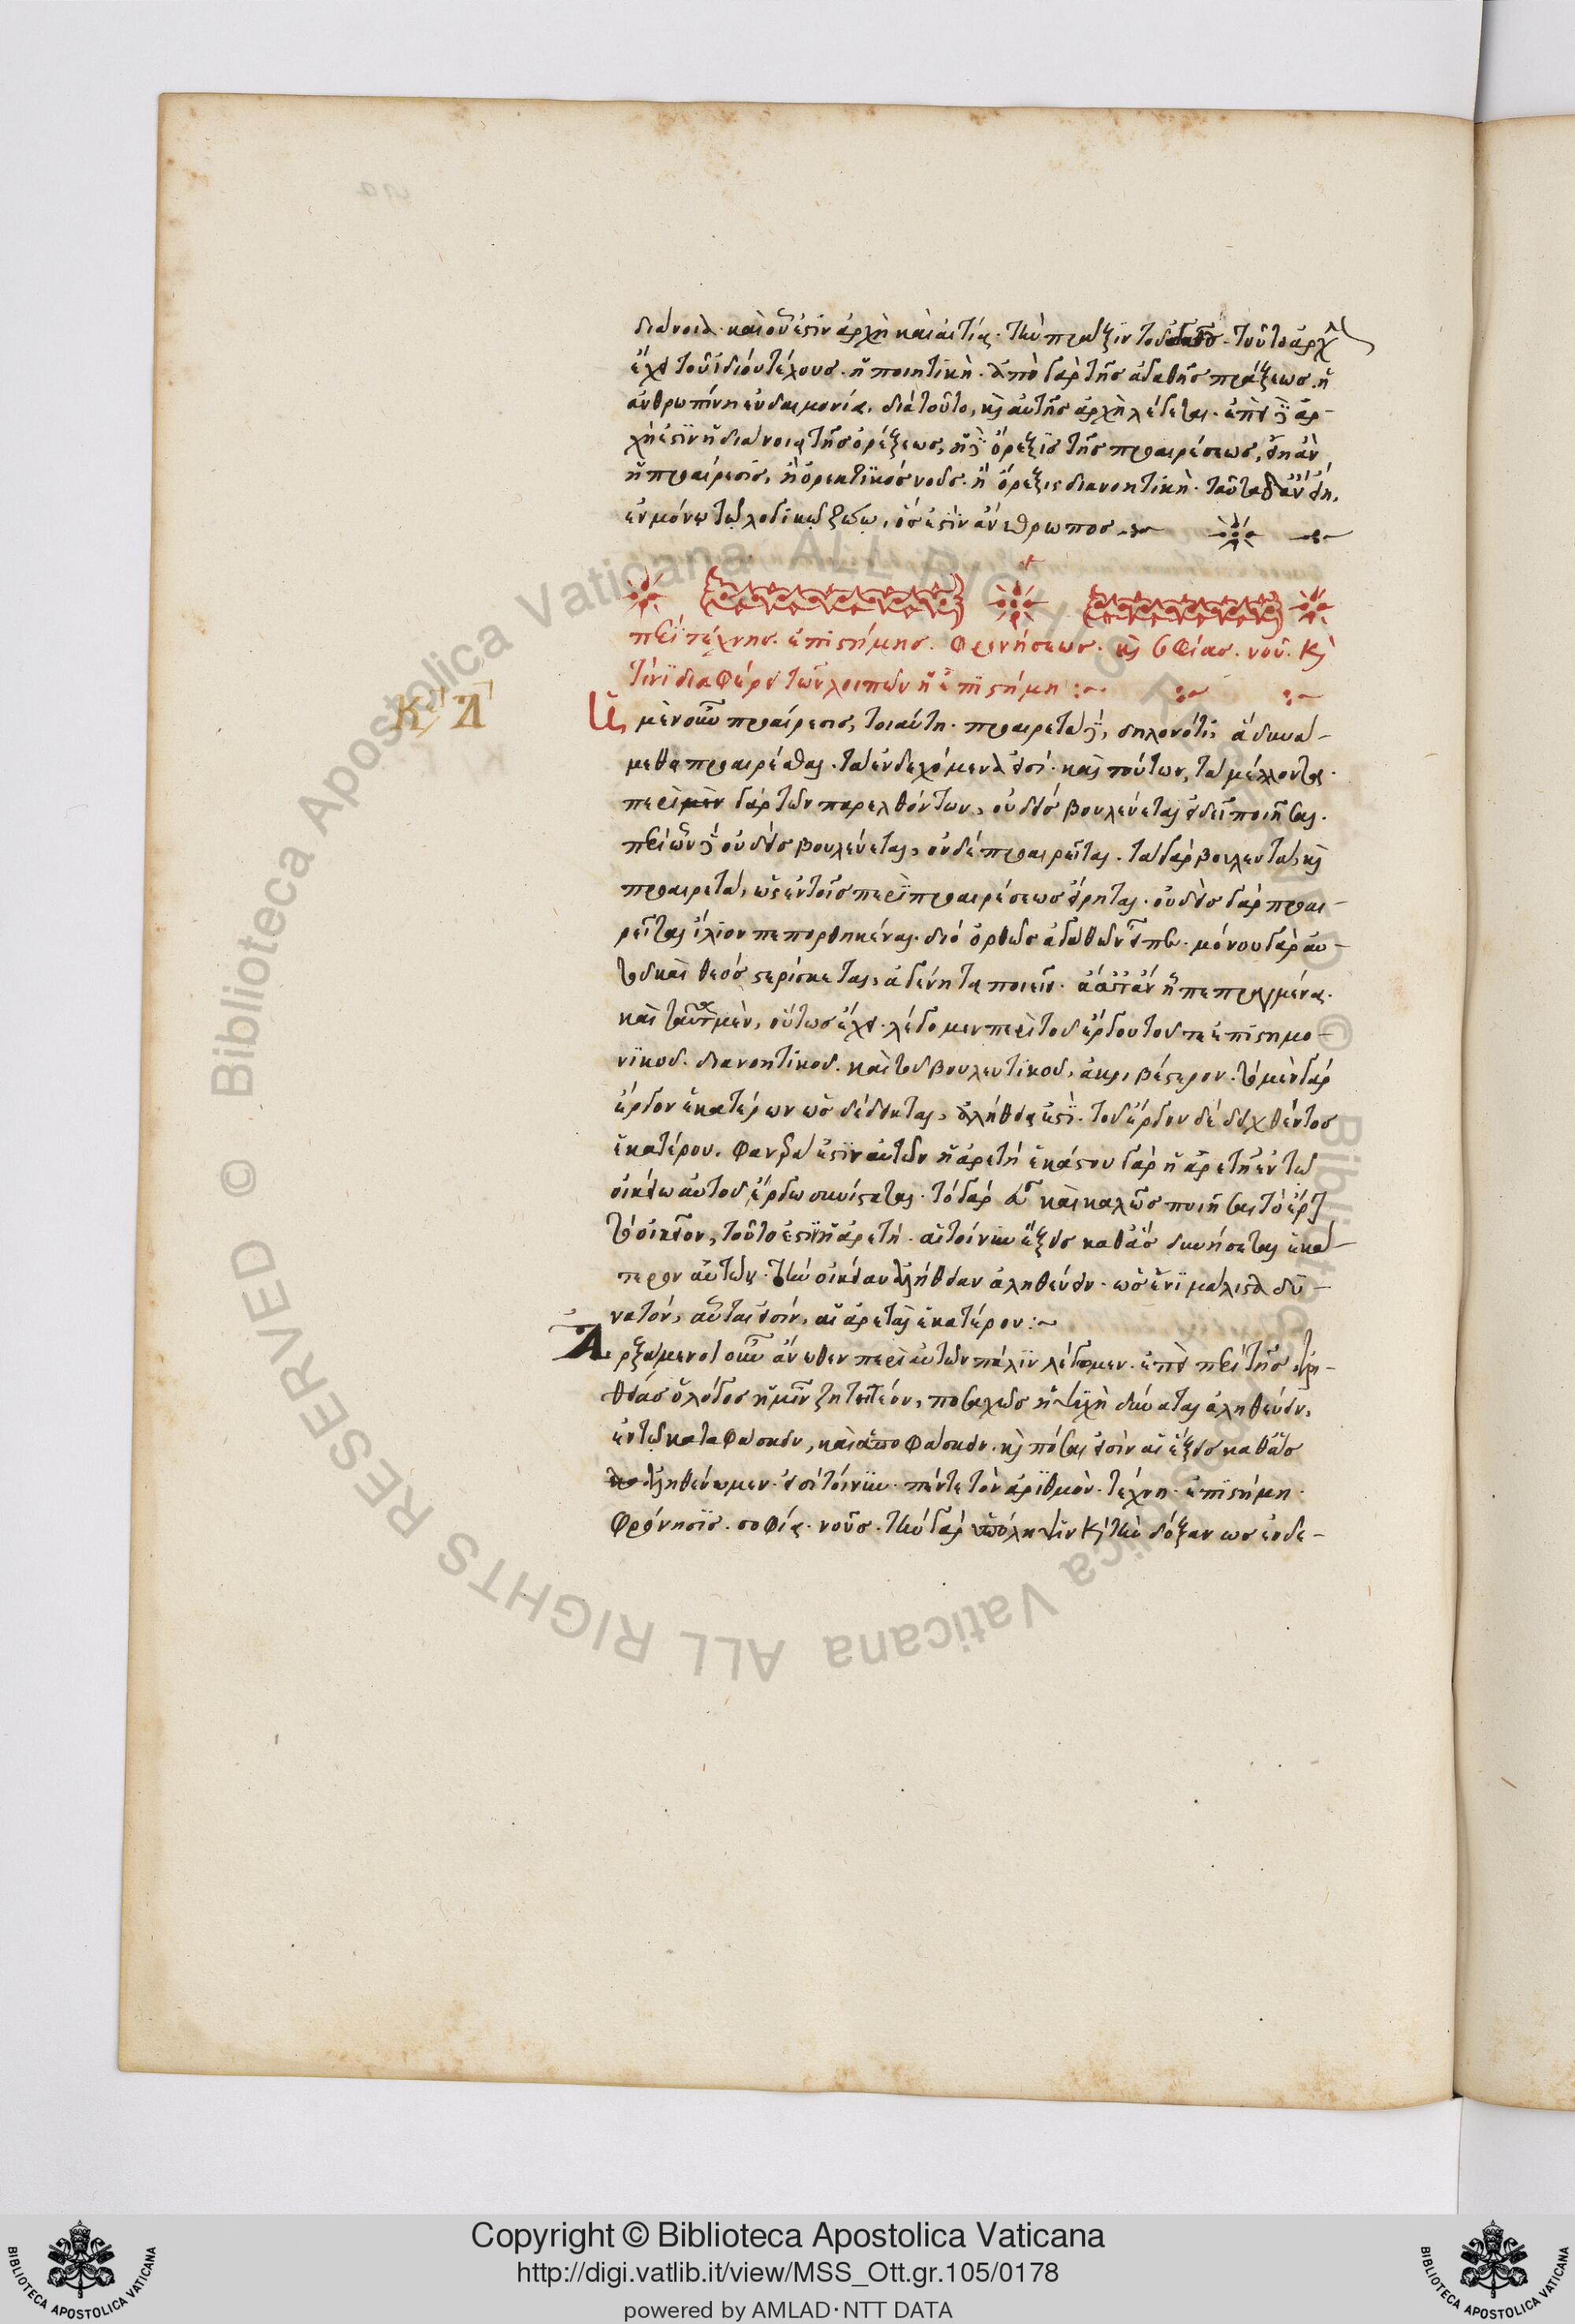 διάνοια. καὶ οὗ ἐστὶν ἀρχὴ καὶ αἰτία. τὴν πρᾶξιν τοῦ ἀγαθοῦ. τοῦτο ἀρχὴν
ἔχει τοῦ ἰδίου τέλους. ἡ ποιητικὴ. ἀπὸ γὰρ τῆς ἀγαθῆς πράξεως. ἡ
ἀνθρωπίνη εὐδαιμονία. διὰ τοῦτο, καὶ αὐτῆς ἀρχὴ λέγεται. ἐπεὶ δὲ ἀρ-
χὴ ἐστὶν ἡ διάνοια τῆς ὀρέξεως, ἡ δὲ ὄρεξις τῆς προαιρέσεως, εἴη ἂν
ἡ προαίρεσις, ἢ ὀρεκτικὸς νοῦς. ἢ ὄρεξις διανοητικὴ. ταῦτα δ' ἂν εἴη,
ἐν μόνῳ τῷ λογικῷ ζώῳ, ὅς ἐστὶν ἄνθρωπος
περὶ τέχνης. ἐπιστήμης. φρονήσεως. καὶ σοφίας. νοῦ. καὶ
τίνι διαφέρει τῶν λοιπῶν ἡ ἐπιστήμη :~ :~ :~
Ἡ μὲν οὖν προαίρεσις, τοιαύτη. προαιρετὰ δὲ, δηλονότι ἃ δυνά-
μεθα προαιρεῖσθαι. τὰ ἐνδεχόμενά εἰσι. καὶ τούτων, τὰ μέλλοντα.
περὶ μὲν γὰρ τῶν παρελθόντων, οὐδεὶς βουλεύεται εἰ δεῖ ποιῆσαι.
περὶ ὧν δὲ οὐδεὶς βουλεύεται, οὐδὲ προαιρεῖται. τὰ γὰρ βουλευτὰ, καὶ
προαιρετὰ, ὡς ἐν τοῖς περὶ προαιρέσεως εἴρηται. οὐδεὶς γὰρ προαι-
ρεῖται ἴλιον πεπορθηκέναι. διὸ ὀρθῶς ἀγάθων εἶπε. μόνου γὰρ αὐ-
τοῦ καὶ θεὸς στερίσκεται, ἀγένητα ποιεῖν. ἅσσ' ἂν ᾖ πεπραγμένα.
καὶ ταῦτα μὲν, οὕτως ἔχει. λέγομεν περὶ τοῦ ἔργου τοῦ τε ἐπιστημο-
νικοῦ. διανοητικοῦ. καὶ τοῦ βουλευτικοῦ, ἀκριβέστερον. τὸ μὲν γὰρ
ἔργον ἑκατέρων ὡς δέδεικται, ἀλήθεια ἐστὶ. τοῦ ἔργου δὲ δειχθέντος
ἑκατέρου. φανερά ἐστιν αὐτῶν ἡ ἀρετή ἑκάστου γὰρ ἡ ἀρετὴ ἐν τῷ
οἰκείῳ αὐτοῦ ἔργῳ συνίσταται. τὸ γὰρ εὖ καὶ καλῶς ποιῆσαι τὸ ἔργον
τὸ οἰκεῖον, τοῦτο ἐστὶν ἡ ἀρετή. αἱ τοίνυν ἕξεις καθ' ἃς δυνήσεται ἑκά-
τερον αὐτῶν. τὴν οἰκείαν ἀλήθειαν ἀληθεύειν. ὡς ἔνι μάλιστα δυ-
νατόν, αὗται εἰσίν, αἱ ἀρεταὶ ἑκατέρου :~
Ἀρξάμενοι οὖν ἄνωθεν περὶ αὐτῶν πάλιν λέγομεν. ἐπεὶ περὶ τῆς ἀλη-
θείας ὁ λόγος ἡμῖν ζητητέον, ποσαχῶς ἡ ψυχὴ δύναται ἀληθεύειν,
ἐν τῷ καταφάσκειν, καὶ ἀποφάσκειν. καὶ πόσαι εἰσὶν αἱ ἕξεις καθ' ἃς
ἀληθεύομεν. εἰσὶ τοίνυν. πέντε τὸν ἀριθμὸν. τέχνη. ἐπιστήμη.
φρόνησις. σοφία. νοῦς. τὴν γὰρ ὑπόληψιν καὶ τὴν δόξαν ὡς ἐνδε-
Copyright © Biblioteca Apostolica Vaticana
http://digi.vatlib.it/view/MSS_Ott.gr.105/0178
powered by AMLAD·NTT DATA
BIBLIOTECA APOSTOLICA VATICANA
BIBLIOTECA APOSTOLICA VATICANA
© Biblioteca Apostolica Vaticana ALL RIGHTS RESERVED
© Biblioteca Apostolica Vaticana ALL RIGHTS RESERVED